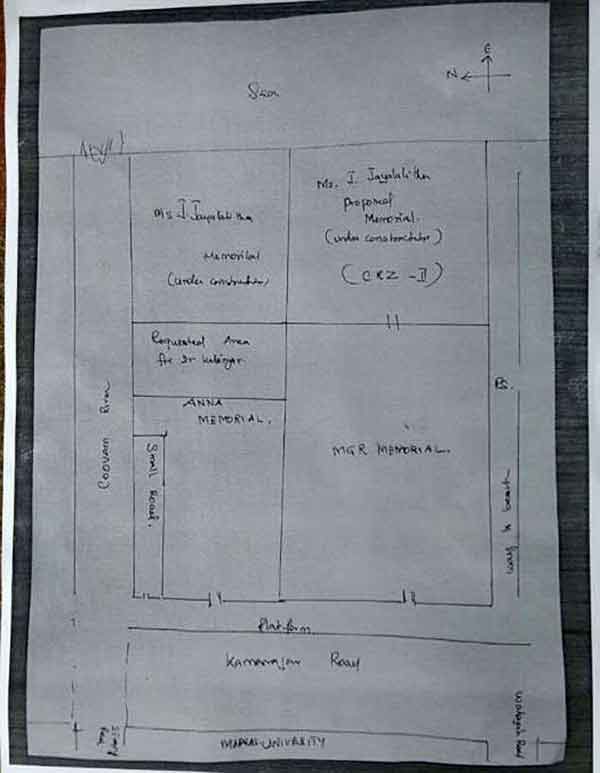 E
N
Sea
Ms. J Jayalalitha
Memorial
(under construction)
Ms. J. Jayalalitha
Proposed
Memorial.
(under construction)
(CRZ -II)
Requested Area
for Dr kalaignar
ANNA
MEMORIAL.
MGR MEMORIAL.
Coovam River
Small Road.
way to beach
Platform
Kamarajar Road
Wallajah Road
MADRAS UNIVERSITY